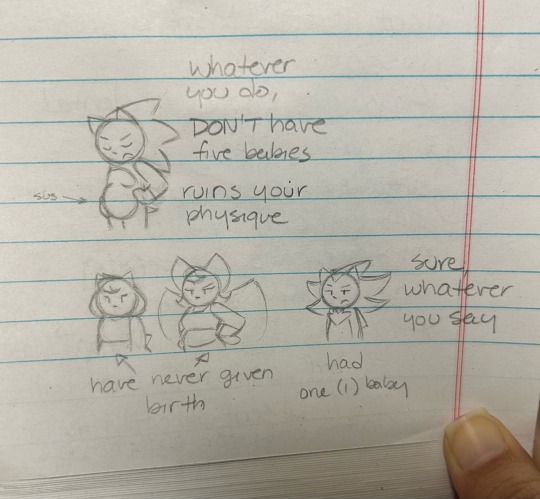 whatever
you do,
DON'T have
five babies
ruins your
physique
sus
sure,
whatever
you say
have never given
birth
had
one (1) baby